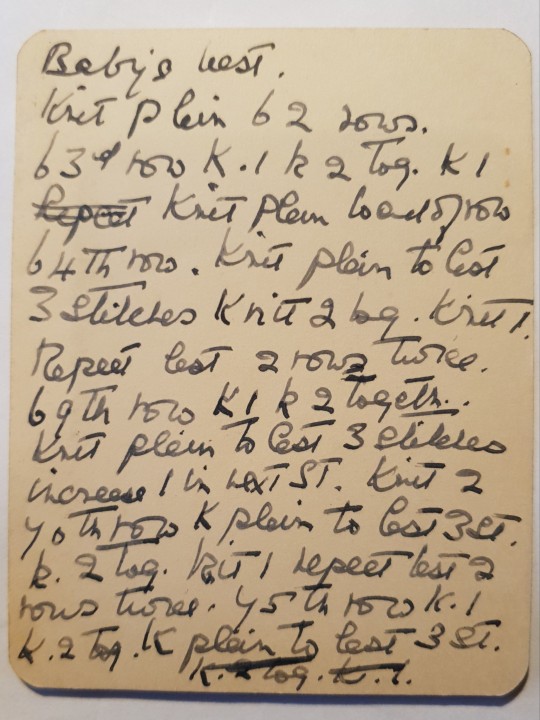 Baby's vest.
Knit plain 62 rows.
63rd row K.1 k 2 Tog. K 1
Repeat Knit plain to end of row
64th row. Knit plain to last
3 stitches Knitt 2 tog. Knitt 1.
Repeat last 2 rows twice.
69th row K 1 k 2 togeth.
Knit plain to last 3 stitches
increase 1 in next ST. Knit 2
70th row K plain to last 3 st.
k. 2 tog. Knit 1 repeat last 2
rows twice. 75th row K. 1
K. 2 tog. K plain to last 3 st.
K. 2 tog. K. 1.